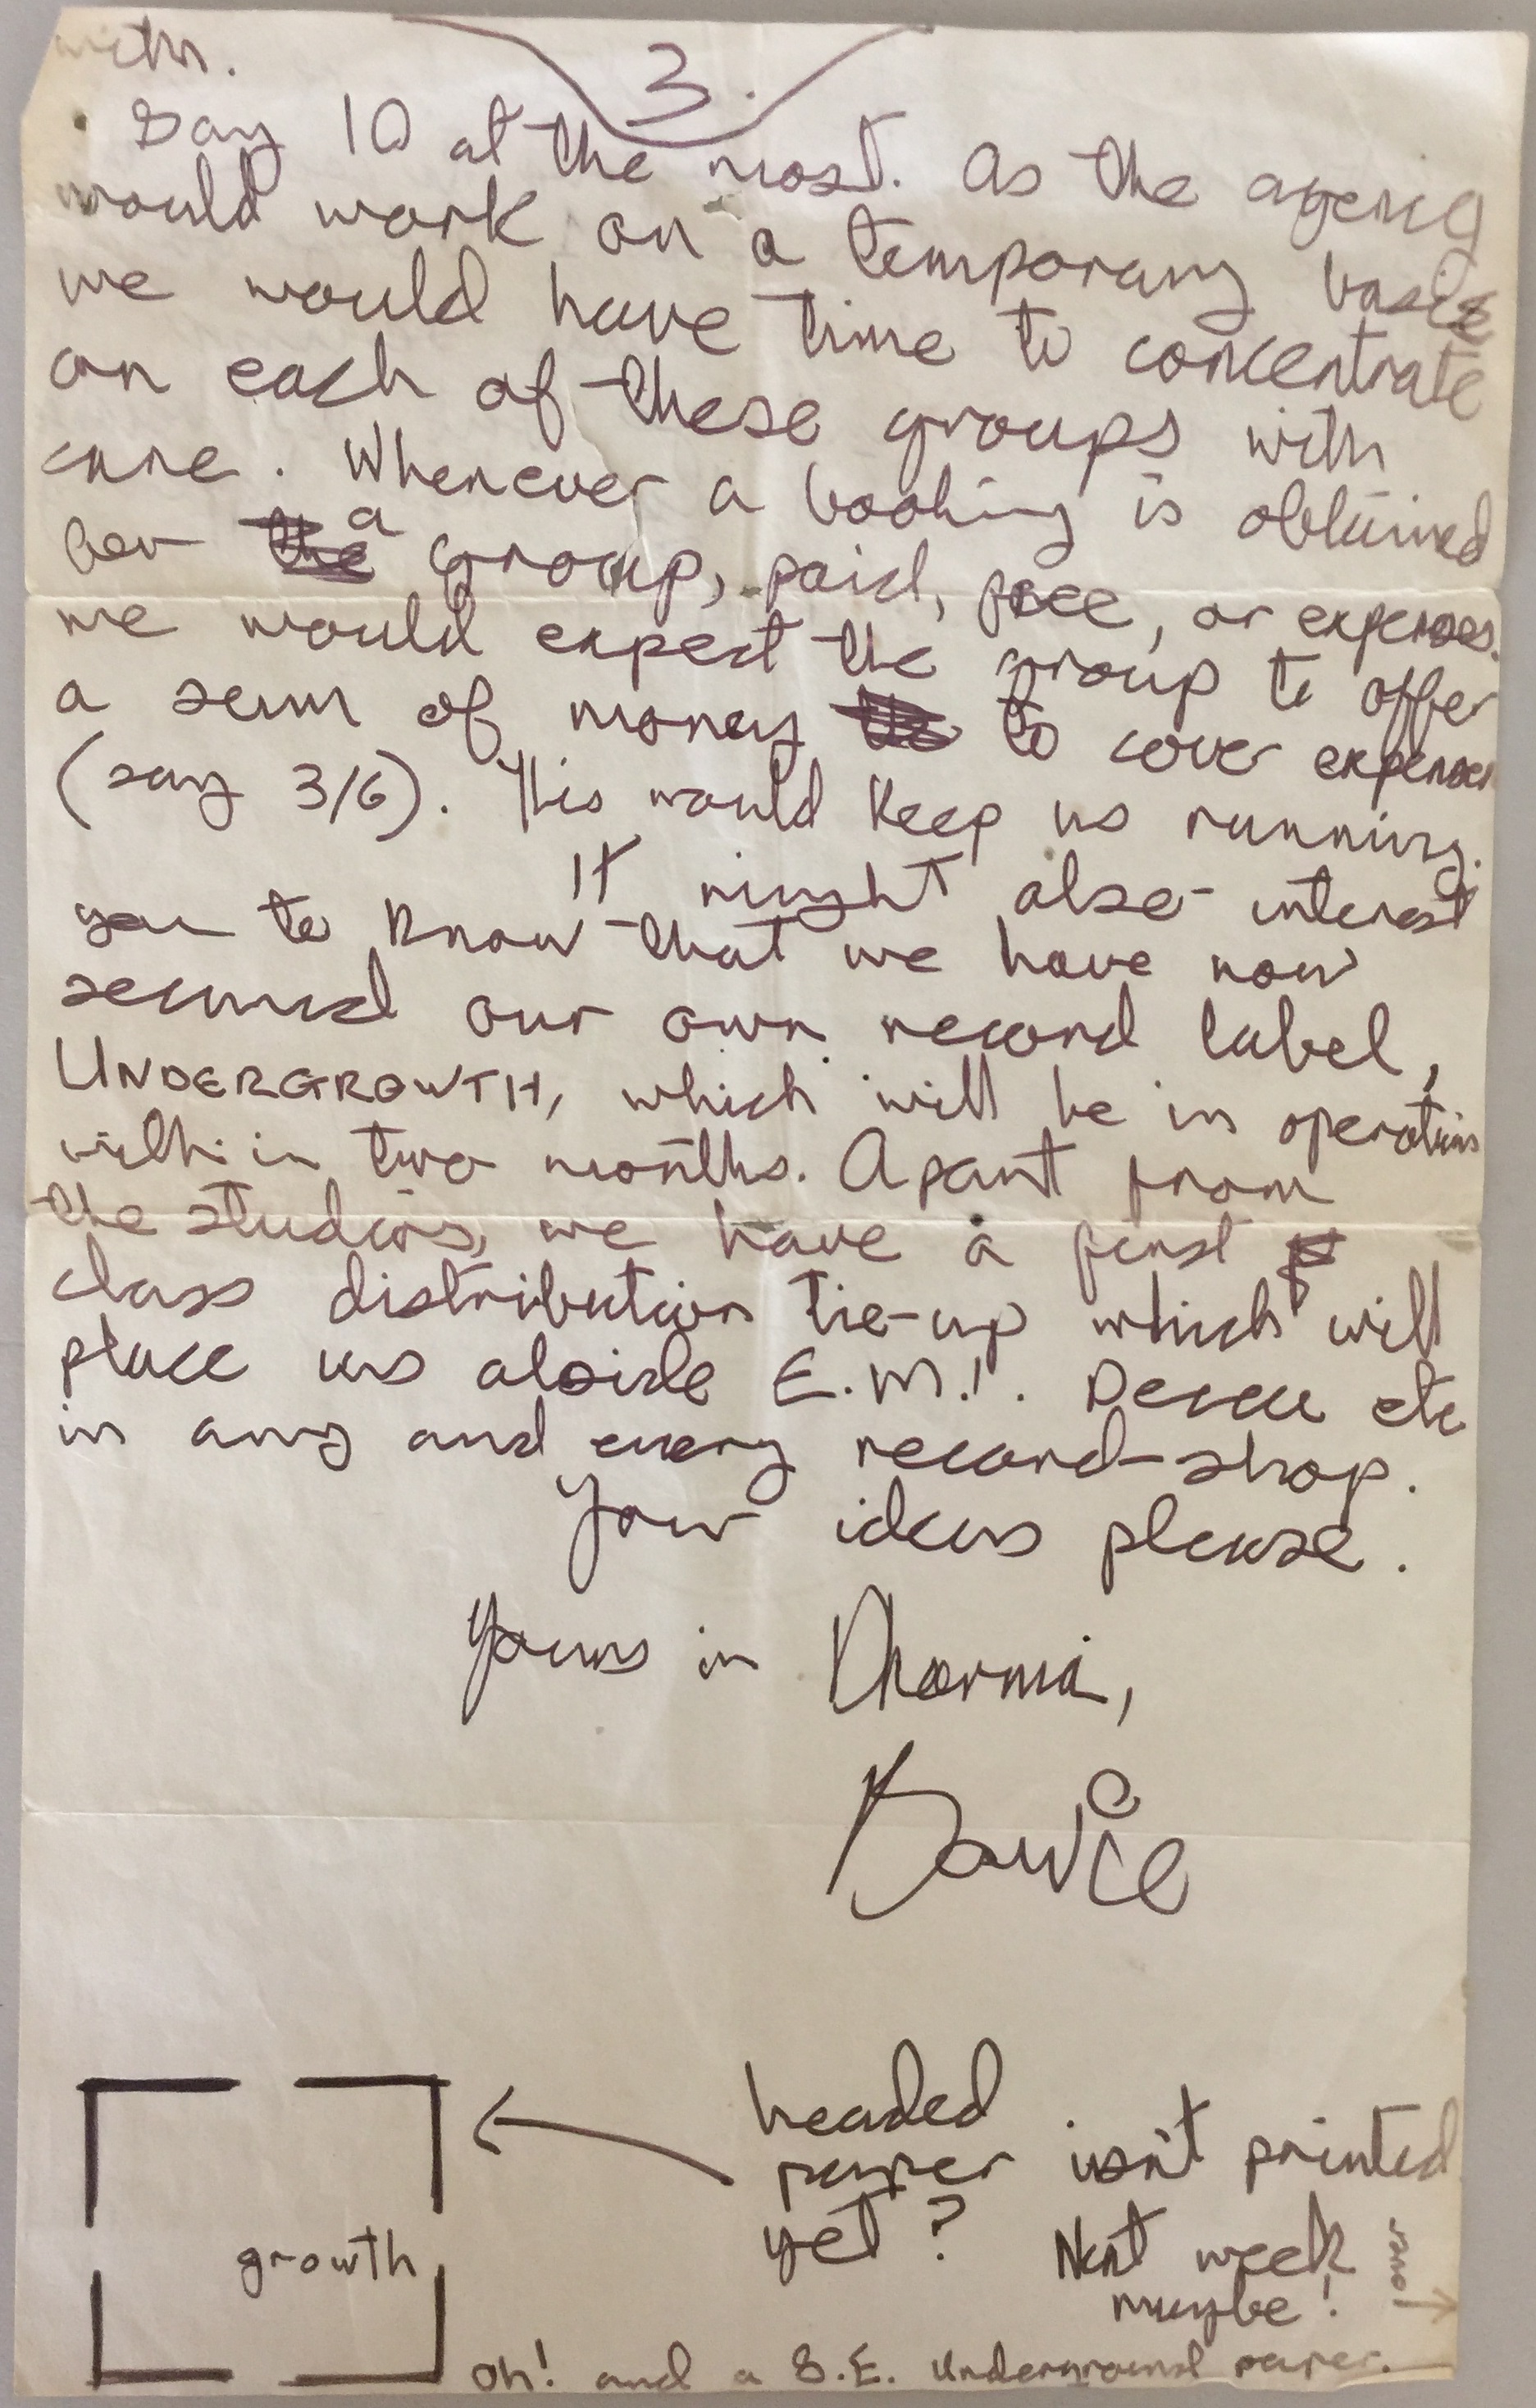 with.
3.
Say 10 at the most. As the agency
would work on a temporary basis
we would have time to concentrate
on each of these groups with
care. Whenever a booking is obtained
for a group, paid, free, or expenses.
we would expect the group to offer
a sum of money to cover expenses
(say 3/6). This would keep us running.
It might also interest
you to know that we have now
secured our own record label,
UNDERGROWTH, which will be in operation
within two months. Apart from
the studios, we have a first
class distribution tie-up which will
place us aloside E.M.I. Decca etc
in any and every record-shop.
Your ideas please.
Yours in Dharma,
Bowie
headed
paper isn't printed
yet? Next week
maybe!
over
growth
Oh! and a S.E. Underground paper.